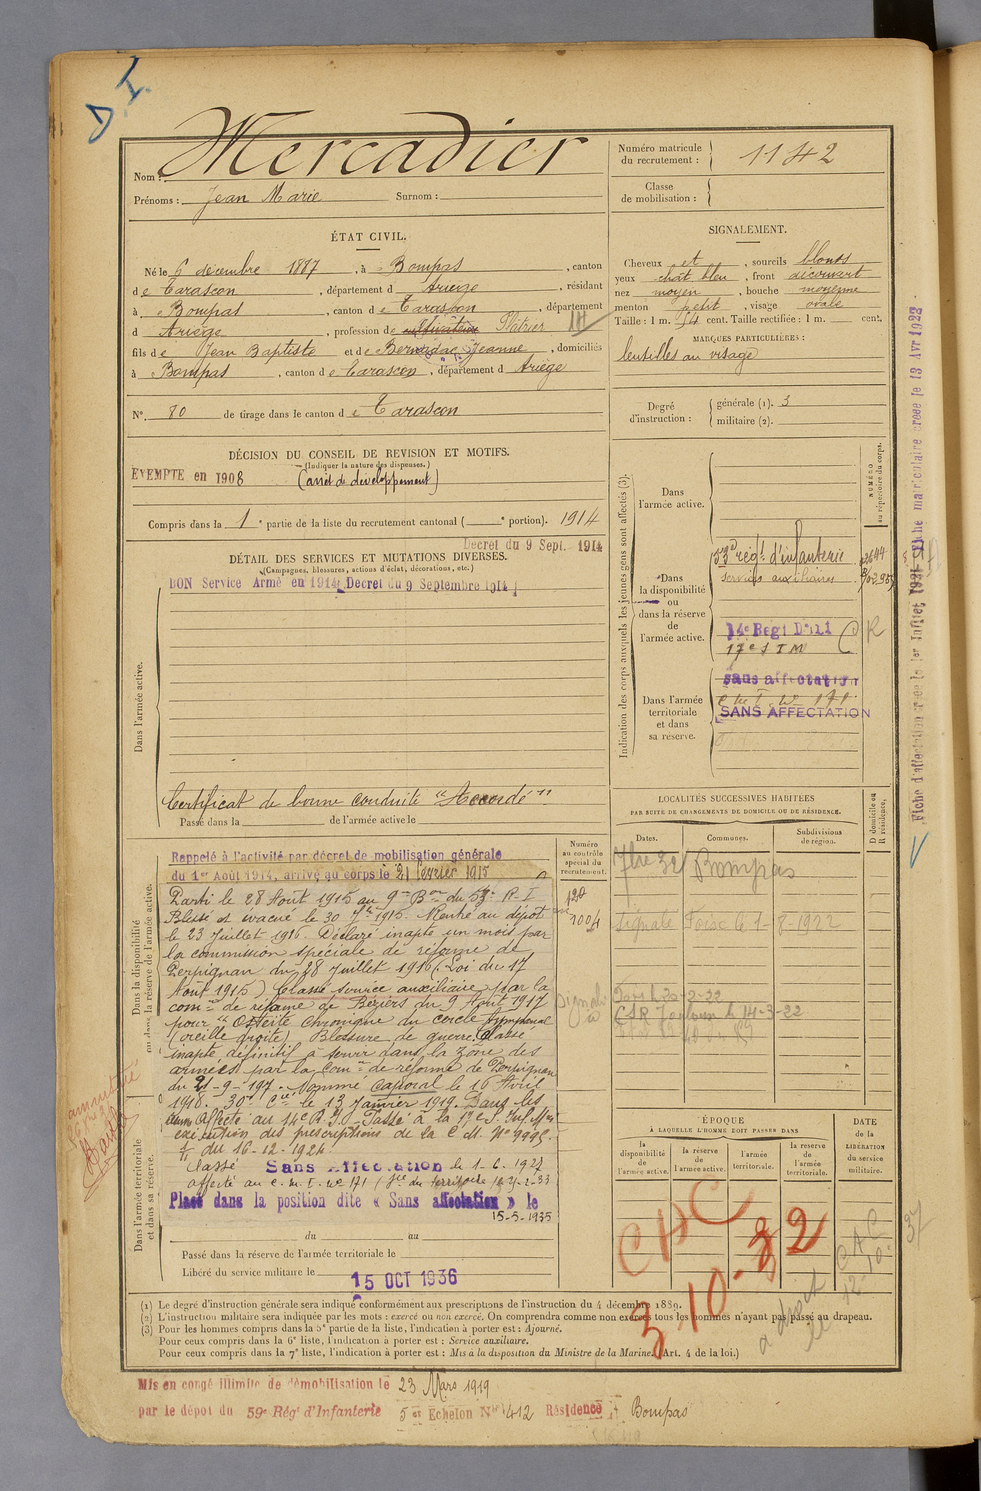 D. I.
Nom : Mercadier
Prénoms : Jean Marie Surnom :
Numéro matricule du recrutement : 1142
Classe de mobilisation :
ÉTAT CIVIL.
Né le 6 décembre 1887, à Bompas, canton
de Tarascon, département d Ariège, résidant
à Bompas, canton de Tarascon, département
d Ariège, profession de cultivateur Plâtrier
fils de Jean Baptiste et de Jeanne, domiciliés
à Bompas, canton de Tarascon, département d Ariège
N° 80 de tirage dans le canton de Tarascon
SIGNALEMENT.
Cheveux et, sourcils blonds
yeux chât bleu, front découvert
nez moyen, bouche moyenne
menton petit, visage ovale
Taille : 1 m. 54 cent. Taille rectifiée : 1 m. cent.
MARQUES PARTICULIÈRES :
lentilles au visage
Degré d'instruction : générale (1). 3
militaire (2).
DÉCISION DU CONSEIL DE REVISION ET MOTIFS.
(Indiquer la nature des dispenses.)
EXEMPTE en 1908 (arrêt de développement)
Compris dans la 1e partie de la liste du recrutement cantonal ( e portion). 1914
Decret du 9 Sept. 1914
DÉTAIL DES SERVICES ET MUTATIONS DIVERSES.
(Campagnes, blessures, actions d'éclat, décorations, etc.)
BON Service Armé en 1914 Decret du 9 Septembre 1914
Dans l'armée active.
Certificat de bonne conduite "Accordé".
Passé dans la de l'armée active le
Indication des corps auxquels les jeunes gens sont affectés (3).
NUMÉRO au répertoire du corps.
Dans l'armée active.
Dans la disponibilité ou dans la réserve de l'armée active.
53e régt. d'infanterie
services auxiliaires
14e Regt D'Inf
17e S T M
C R
Dans l'armée territoriale et dans sa réserve.
sans affectation
SANS AFFECTATION
LOCALITÉS SUCCESSIVES HABITÉES
PAR SUITE DE CHANGEMENTS DE DOMICILE OU DE RÉSIDENCE.
Dates. Communes. Subdivisions de région. D domicile ou R résidence.
Bompas
signalé Foix le 1-8-1922
Toulouse le 14-3-22
Dans la disponibilité ou dans la réserve de l'armée active.
Numéro au contrôle spécial du recrutement.
Rappelé à l'activité par décret de mobilisation générale
du 1er Août 1914, arrivé au corps le 21 février 1915
Parti le 28 Août 1915 au 9e Bon du 53e R. I
Blessé et évacué le 30 7bre 1915. Rentré au dépôt
le 23 Juillet 1916. Déclaré inapte un mois par
la commission spéciale de réforme de
Perpignan du 28 juillet 1916 (Loi du 17
Août 1915) Classé service auxiliaire par la
comon de réforme de Béziers du 9 Août 1917
pour "Ostéite chronique du cercle tympanal
(oreille droite) Blessure de guerre. Classé
inapte définitif à servir dans la zone des
armées par la comon de réforme de Perpignan
du 21-9-1917. Nommé Caporal le 16 Avril
1918. le 13 Janvier 1919. Dans les
Affecté au 14e R. I. Passé à la 17e S
exécution des prescriptions de la C M. No 9995
du 16-12-1924.
Classé Sans Affectation le 1-6-1927
affecté au c. m. I. no 171
Placé dans la position dite « Sans affectation » le
15-5-1935
Dans l'armée territoriale et dans sa réserve.
du au
Passé dans la réserve de l'armée territoriale le
Libéré du service militaire le 15 OCT 1936
ÉPOQUE
À LAQUELLE L'HOMME DOIT PASSER DANS
la disponibilité de l'armée active. la réserve de l'armée active. l'armée territoriale. la réserve de l'armée territoriale.
DATE de la LIBÉRATION du service militaire.
CAC
3-10-32
CAC
12-10-37
(1) Le degré d'instruction générale sera indiqué conformément aux prescriptions de l'instruction du 4 décembre 1889.
(2) L'instruction militaire sera indiquée par les mots : exercé ou non exercé. On comprendra comme non exercés tous les hommes n'ayant pas passé au drapeau.
(3) Pour les hommes compris dans la 5e partie de la liste, l'indication à porter est : Ajourné.
Pour ceux compris dans la 6e liste, l'indication à porter est : Service auxiliaire.
Pour ceux compris dans la 7e liste, l'indication à porter est : Mis à la disposition du Ministre de la Marine. (Art. 4 de la loi.)
Mis en congé illimité de démobilisation le 23 Mars 1919
par le dépôt du 59e Régt d'Infanterie 5e Echelon No 1412 Résidence Bompas
Fiche d'affectation créée le 1er Juillet 1921 - Fiche matriculaire créée le 13 Avr 1922